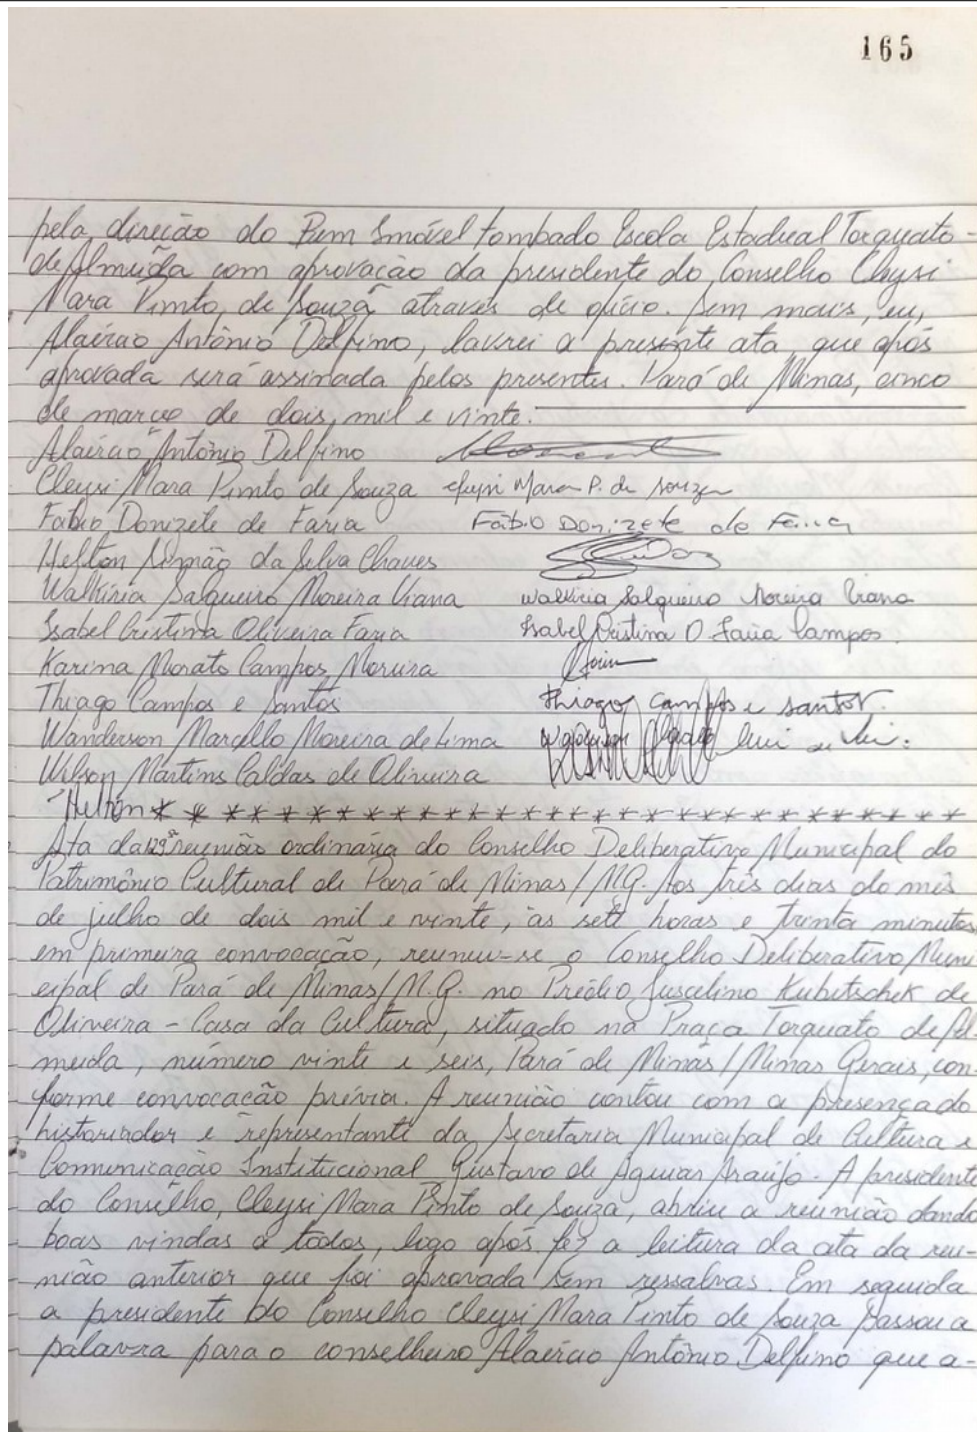 165
pela direção do Bem Imóvel tombado Escola Estadual Torquato
de Almeida com aprovação da presidente do Conselho Cleysi
Mara Pinto de Souza através de ofício. Sem mais, eu,
Alaércio Antônio Delfino, lavrei a presente ata, que após
aprovada será assinada pelos presentes. Pará de Minas, cinco
de março de dois mil e vinte.
Alaércio Antônio Delfino
Cleysi Mara Pinto de Souza Cleysi Mara P. de Souza
Fábio Donizete de Faria Fábio Donizete de Faria
Helton Simão da Silva Chaves
Walkiria Salgueiro Moreira Viana Walkiria Salgueiro Moreira Viana
Isabel Cristina Oliveira Faria Isabel Cristina O Faria Campos.
Karina Morato Campos Moreira
Thiago Campos e Santos Thiago Campos e Santos.
Wanderson Marcello Moreira de Lima
Wilson Martins Caldas de Oliveira
Helton * * * * * * * * * * * * * * * * * * * * * * * * * * * * *
Ata da 129ª reunião ordinária do Conselho Deliberativo Municipal do
Patrimônio Cultural de Pará de Minas/MG. Aos três dias do mês
de julho de dois mil e vinte, às sete horas e trinta minutos
em primeira convocação, reuniu-se o Conselho Deliberativo Muni
cipal de Pará de Minas/M.G. no Prédio Juscelino Kubitschek de
Oliveira - Casa da Cultura, situado na Praça Torquato de Al-
meida, número vinte e seis, Pará de Minas/Minas Gerais, con-
forme convocação prévia. A reunião contou com a presença do
historiador e representante da Secretaria Municipal de Cultura e
Comunicação Institucional Gustavo de Aguiar Araújo. A presidente
do Conselho, Cleysi Mara Pinto de Souza, abriu a reunião dando
boas vindas a todos, logo após fez a leitura da ata da reu-
nião anterior que foi aprovada sem ressalvas. Em seguida
a presidente do Conselho Cleysi Mara Pinto de Souza passou a
palavra para o conselheiro Alaércio Antônio Delfino que a-